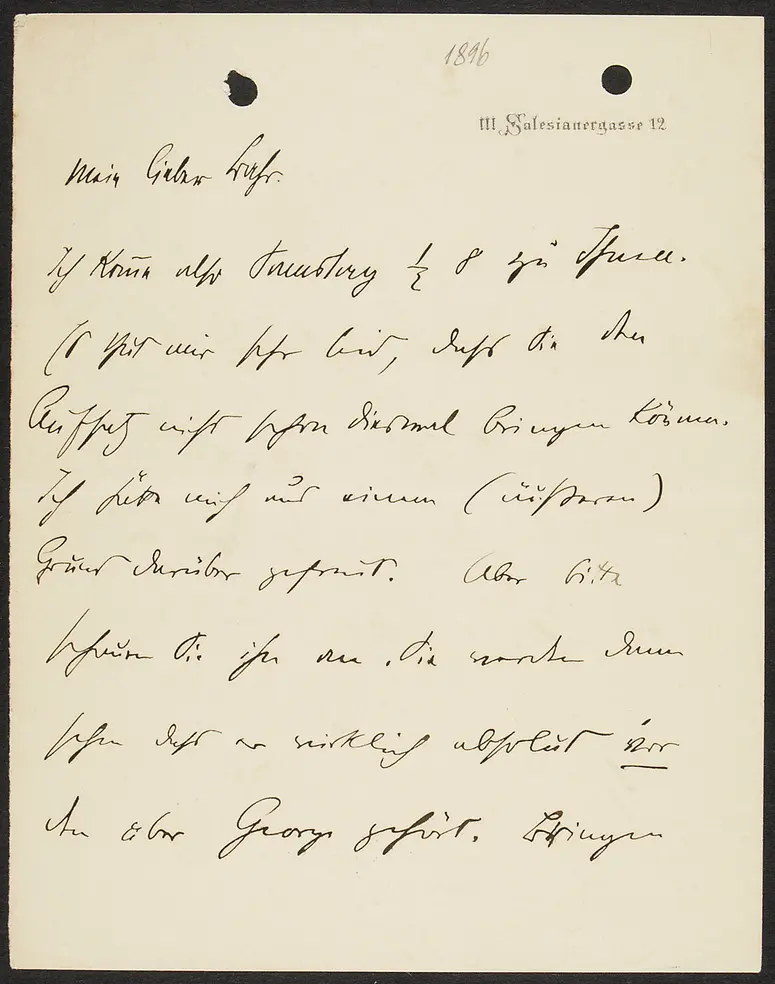 1896
III, Salesianergasse 12
Mein lieber Bahr.
Ich komme also Samstag ½ 8 zu Ihnen.
Es thut mir sehr leid, dass Sie den
Aufsatz nicht schon diesmal bringen können.
Ich hätte mich aus einem (äußeren)
Grund darüber gefreut. Aber bitte
schauen Sie ihn an, Sie werden dann
sehen dass er wirklich absolut vor
den über George gehört. Bringen